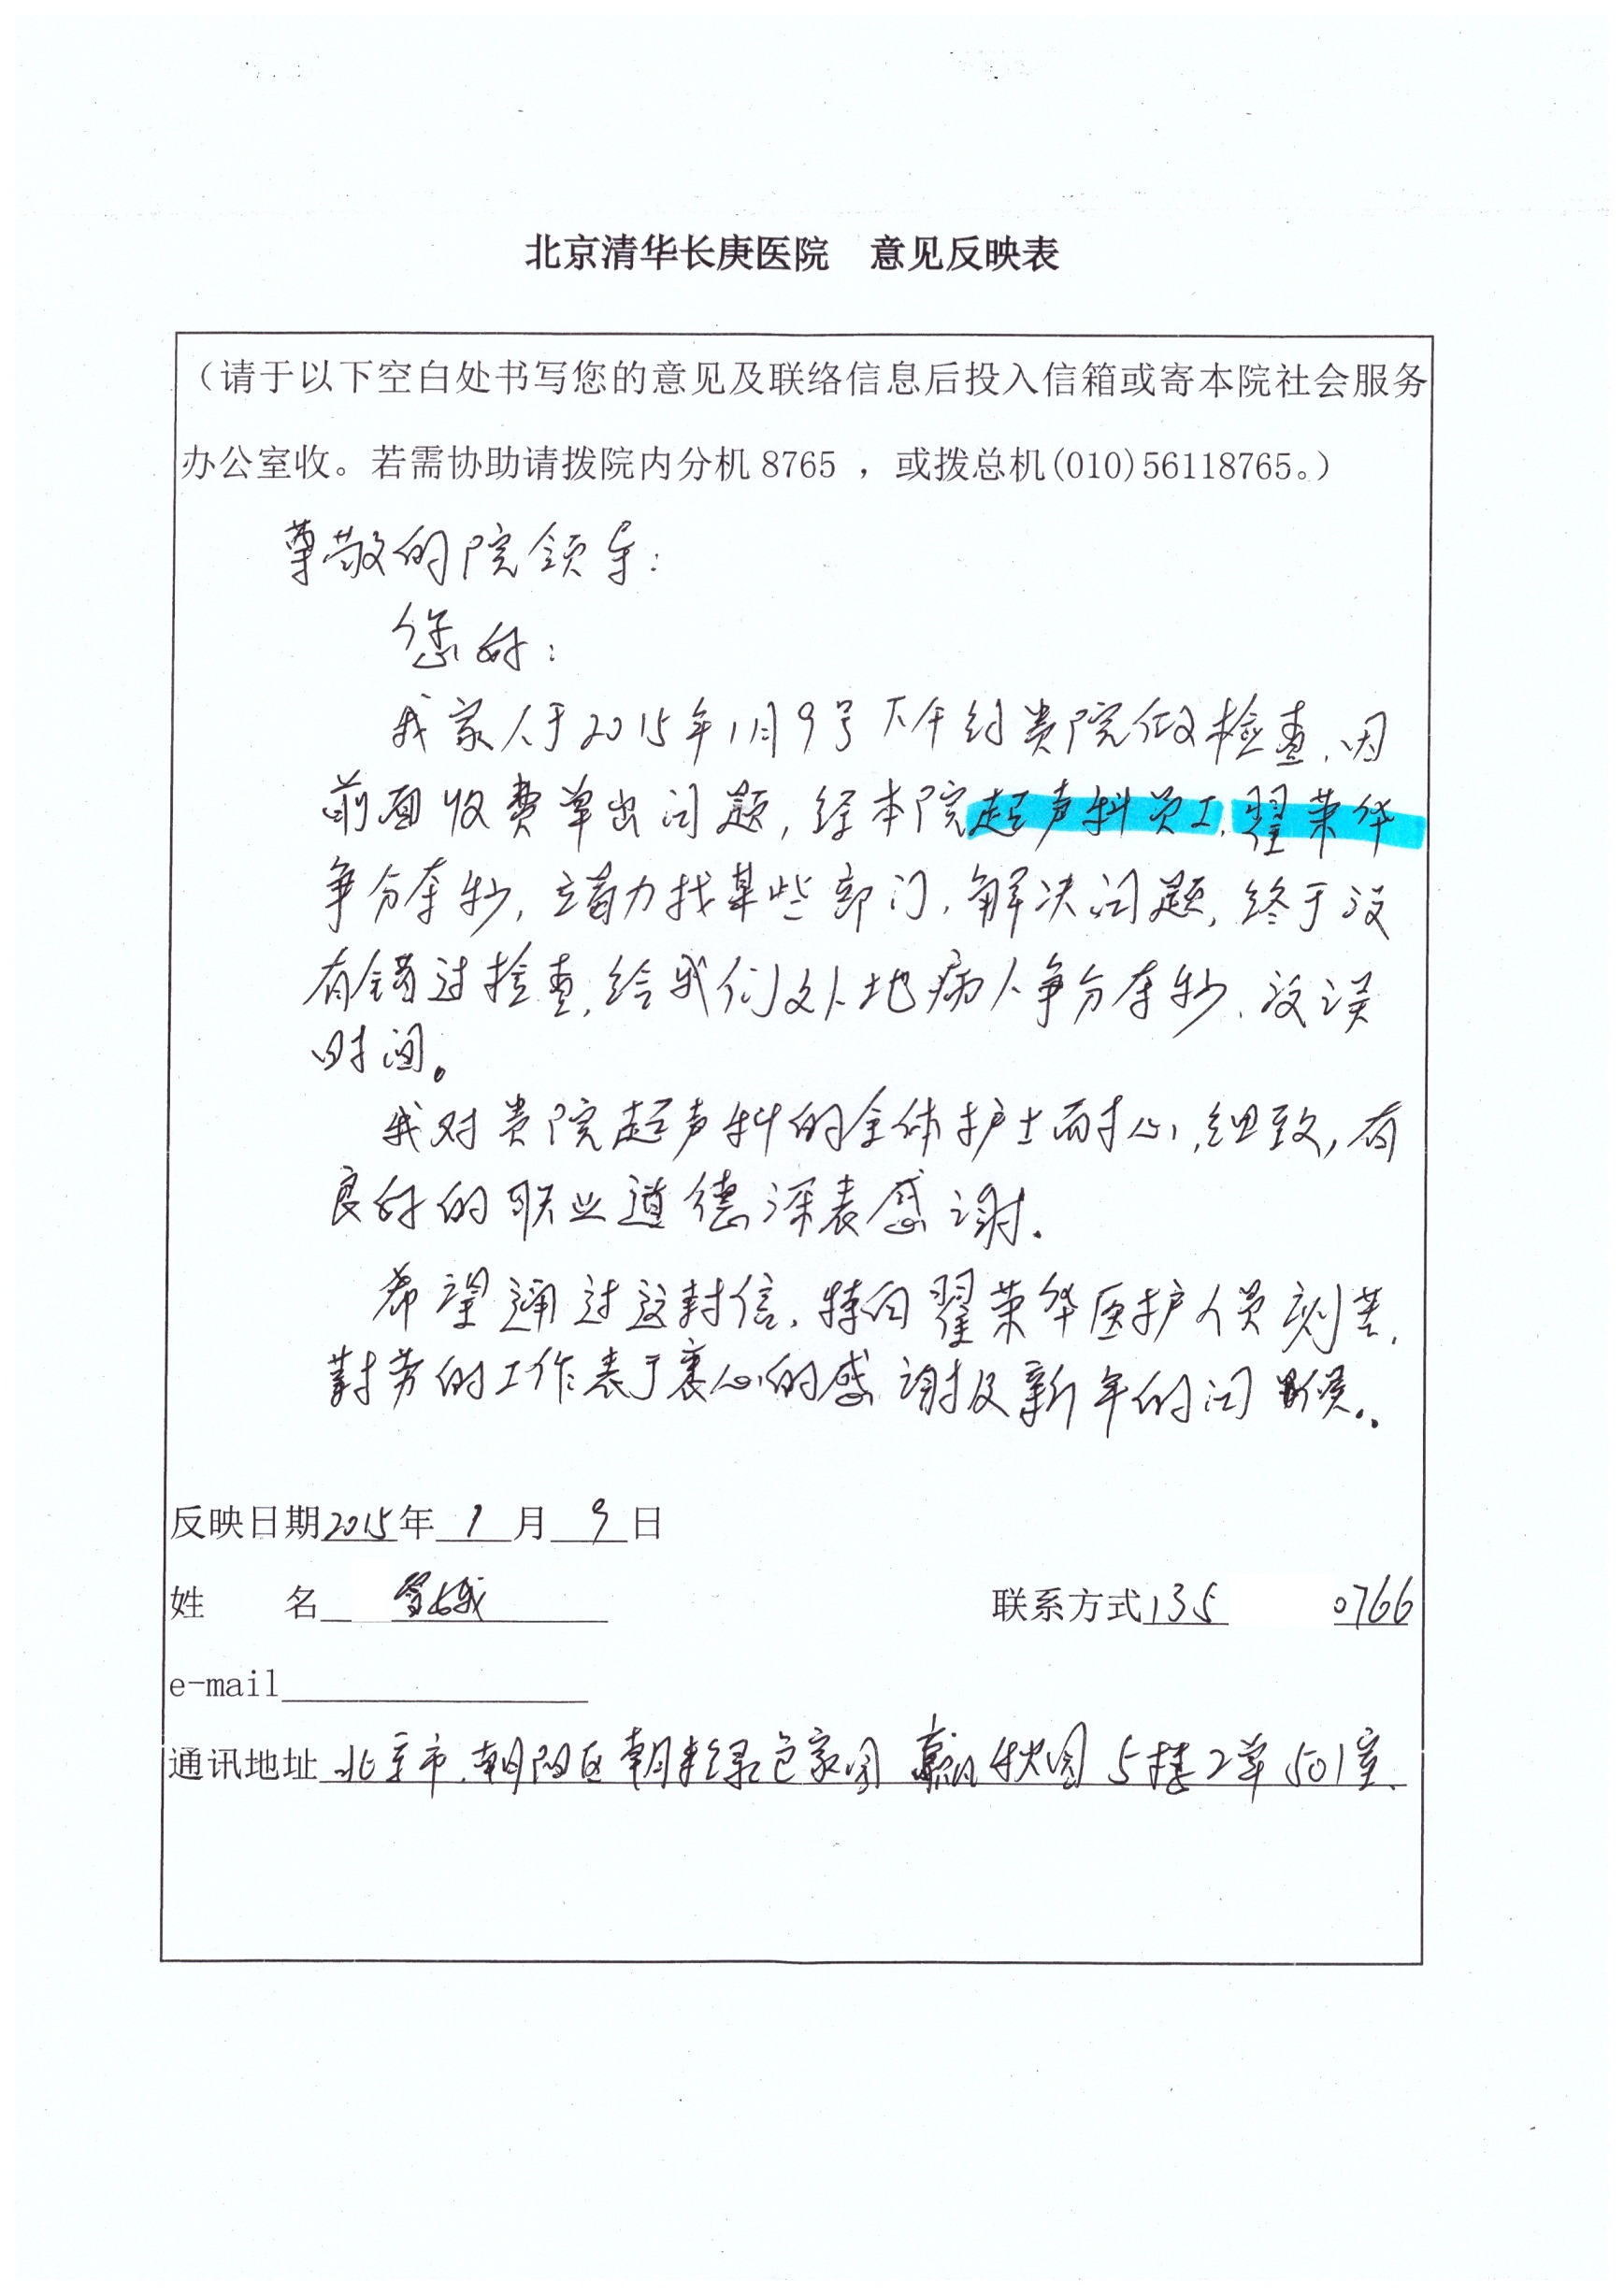 北京清华长庚医院 意见反映表
（请于以下空白处书写您的意见及联络信息后投入信箱或寄本院社会服务
办公室收。若需协助请拨院内分机8765 ，或拨总机(010)56118765。）
尊敬的院领导：
您好：
我家人于2015年1月9号下午到贵院做检查，因
前面收费单出问题，经本院超声科员工，翟荣华
争分夺秒，主动找某些部门，解决问题，终于没
有错过检查，给我们外地病人争分夺秒，没误
时间。
我对贵院超声科的全体护士耐心，细致，有
良好的职业道德深表感谢.
希望通过这封信，特向翟荣华医护人员刻苦，
勤劳的工作表于衷心的感谢及新年的问候..
反映日期2015年 1 月 9 日
姓 名
联系方式135 0766
e-mail
通讯地址 北京市.朝阳区朝来绿色家园 赢秋园 5楼2单501室.